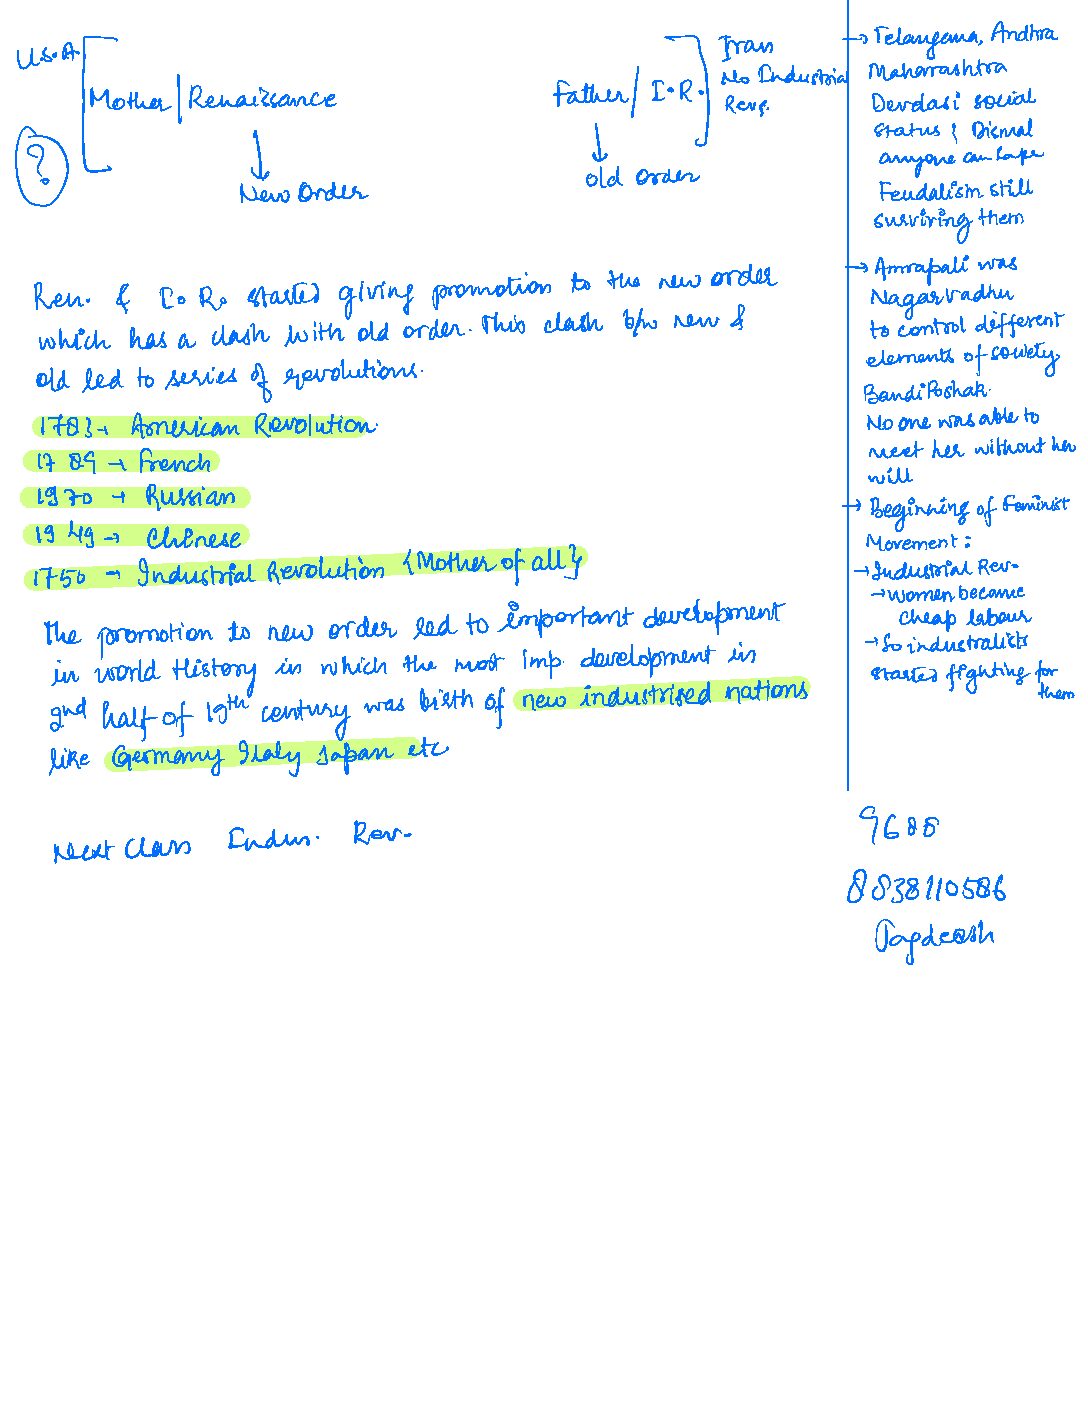 U.S.A.
?
Mother / Renaissance
New Order
Father / I.R.
old order
Iran
No Industrial
Rev.
Ren. & I.R. started giving promotion to the new order
which has a clash with old order. This clash b/w new &
old led to series of revolutions.
1783 → American Revolution.
1789 → French
1970 → Russian
1949 → Chinese
1750 → Industrial Revolution {Mother of all}
The promotion to new order led to important development
in world History in which the most imp. development in
2nd half of 19th century was birth of new industrised nations
like Germany Italy Japan etc
Next Class Indus. Rev.
→ Telangana, Andhra
Maharashtra
Devdasi social
status { Dismal
anyone can
Feudalism still
surviving them
→ Amrapali was
Nagarvadhu
to control different
elements of society,
Bandi Poshak.
No one was able to
meet her without her
will
→ Beginning of Feminist
Movement:
→ Industrial Rev.
→ women became
cheap labour
→ So industralists
started fighting for
them
9688
8838110586
Jagdeesh